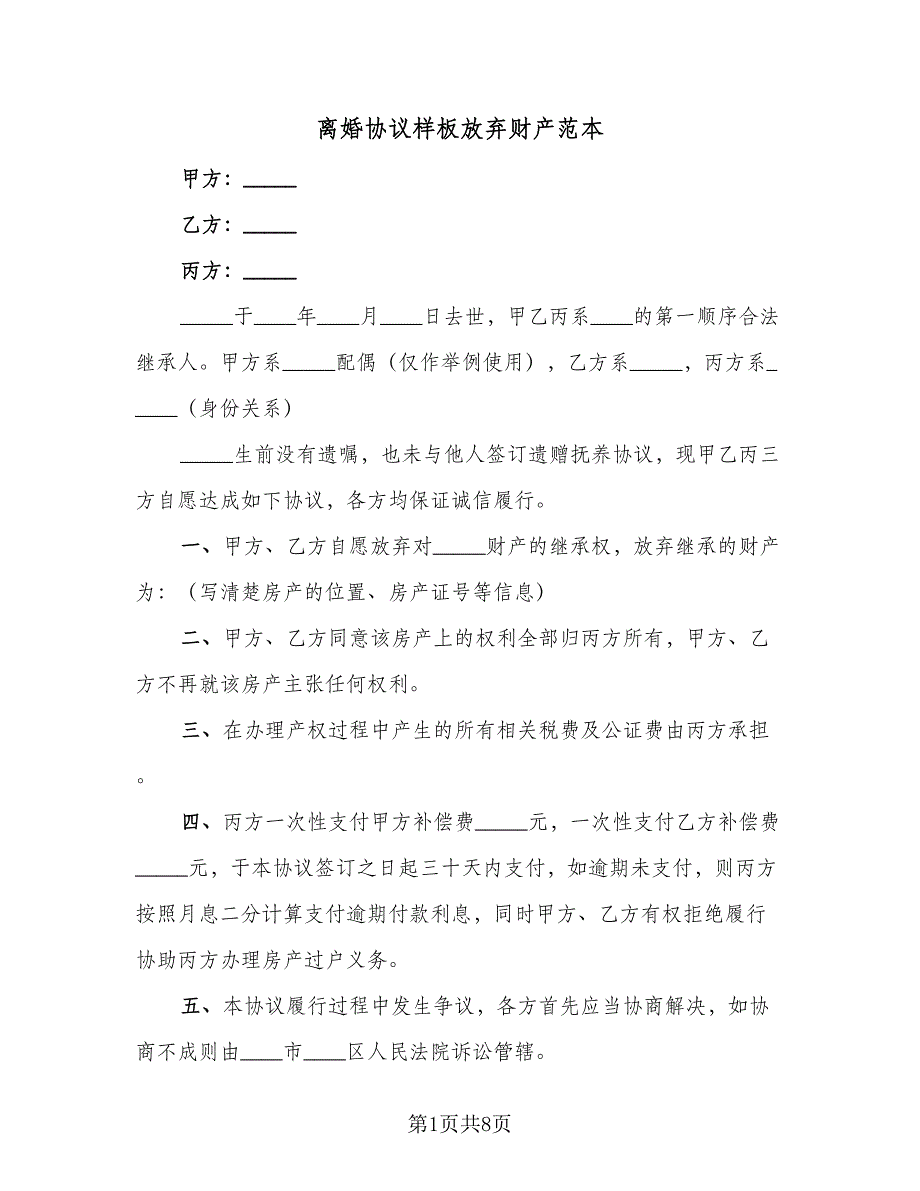 离婚协议样板放弃财产范本
甲方：_____
乙方：_____
丙方：_____
_____于____年____月____日去世，甲乙丙系____的第一顺序合法
继承人。甲方系_____配偶（仅作举例使用），乙方系_____，丙方系_
____（身份关系）
_____生前没有遗嘱，也未与他人签订遗赠抚养协议，现甲乙丙三
方自愿达成如下协议，各方均保证诚信履行。
一、甲方、乙方自愿放弃对_____财产的继承权，放弃继承的财产
为：（写清楚房产的位置、房产证号等信息）
二、甲方、乙方同意该房产上的权利全部归丙方所有，甲方、乙
方不再就该房产主张任何权利。
三、在办理产权过程中产生的所有相关税费及公证费由丙方承担
。
四、丙方一次性支付甲方补偿费_____元，一次性支付乙方补偿费
_____元，于本协议签订之日起三十天内支付，如逾期未支付，则丙方
按照月息二分计算支付逾期付款利息，同时甲方、乙方有权拒绝履行
协助丙方办理房产过户义务。
五、本协议履行过程中发生争议，各方首先应当协商解决，如协
商不成则由____市____区人民法院诉讼管辖。
第1页共8页